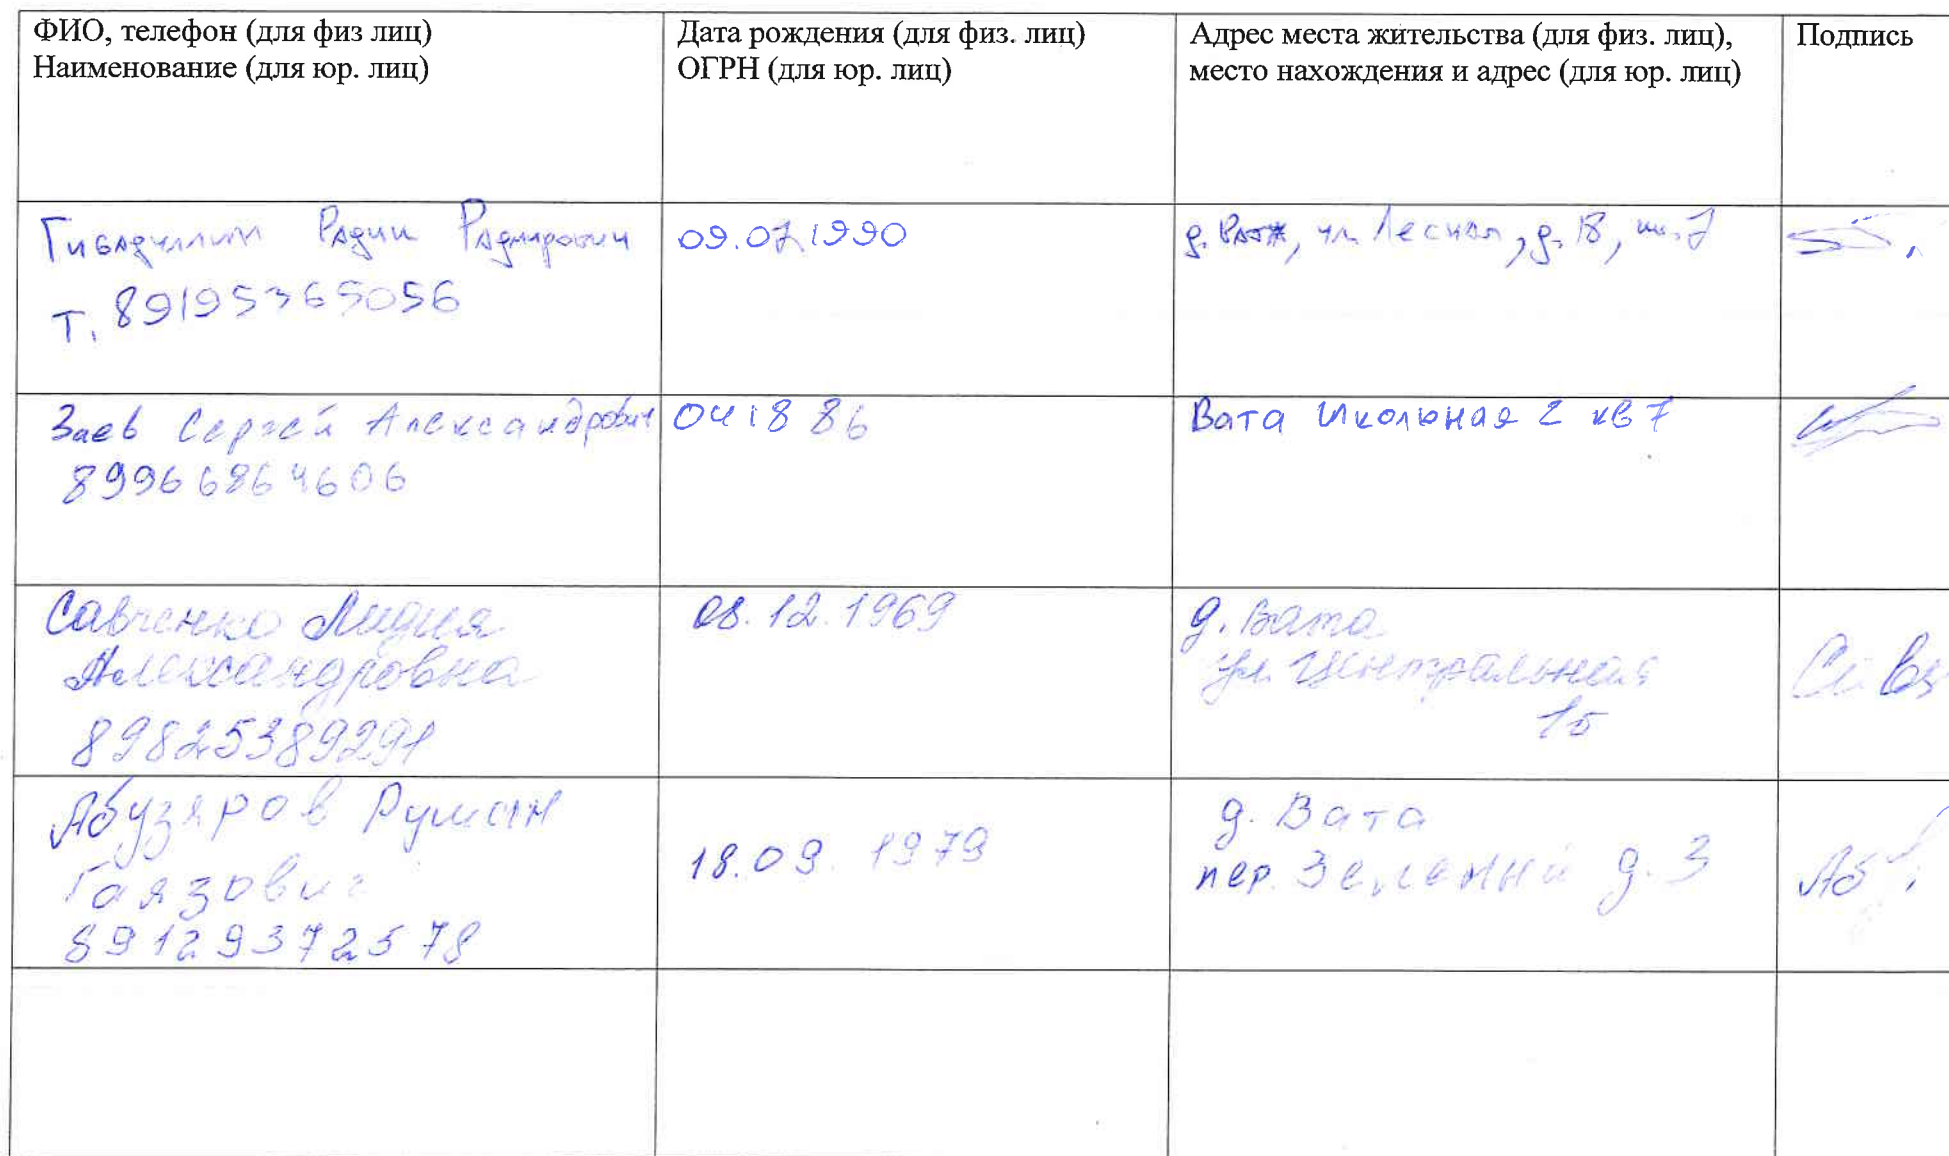 ФИО, телефон (для физ лиц)
Наименование (для юр. лиц)
Дата рождения (для физ. лиц)
ОГРН (для юр. лиц)
Адрес места жительства (для физ. лиц),
место нахождения и адрес (для юр. лиц)
Подпись
Гибадуллин Радик Радмирович
т. 89195365056
09.07.1990
д. Вата, ул. Лесная, д. 18,
Заев Сергей Александрович
89966864606
04 18 86
Вата Школьная 2 кв 7
Савченко Лидия
Александровна
89825389291
08.12.1969
д. Вата
ул. Центральная
15
Абузяров Румин
Гаязович
89129372578
18.09.1979
д. Вата
пер. Зеленый д. 3